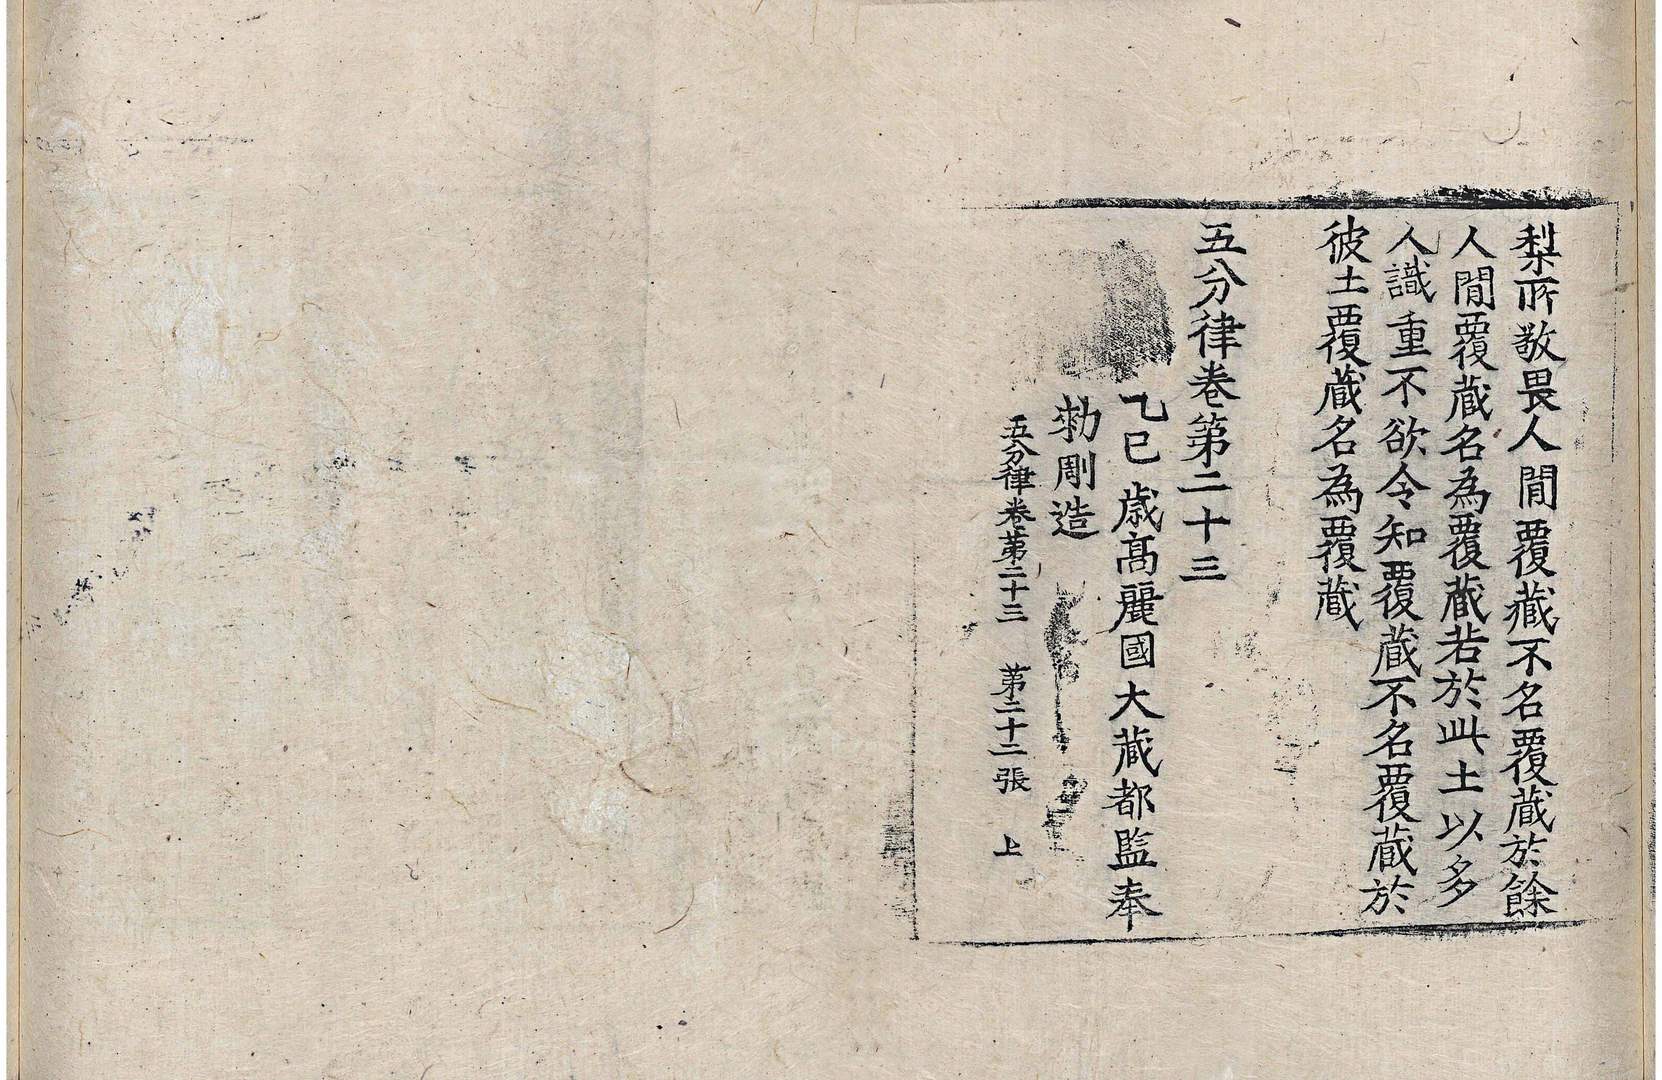 梨所敬畏人間覆藏不名覆藏於餘
人間覆藏名為覆藏若於此土以多
人識重不欲令知覆藏不名覆藏於
彼土覆藏名為覆藏
五分律卷第二十三
乙巳歳高麗國大藏都監奉
勑彫造
五分律卷第二十三 第二十二張 上